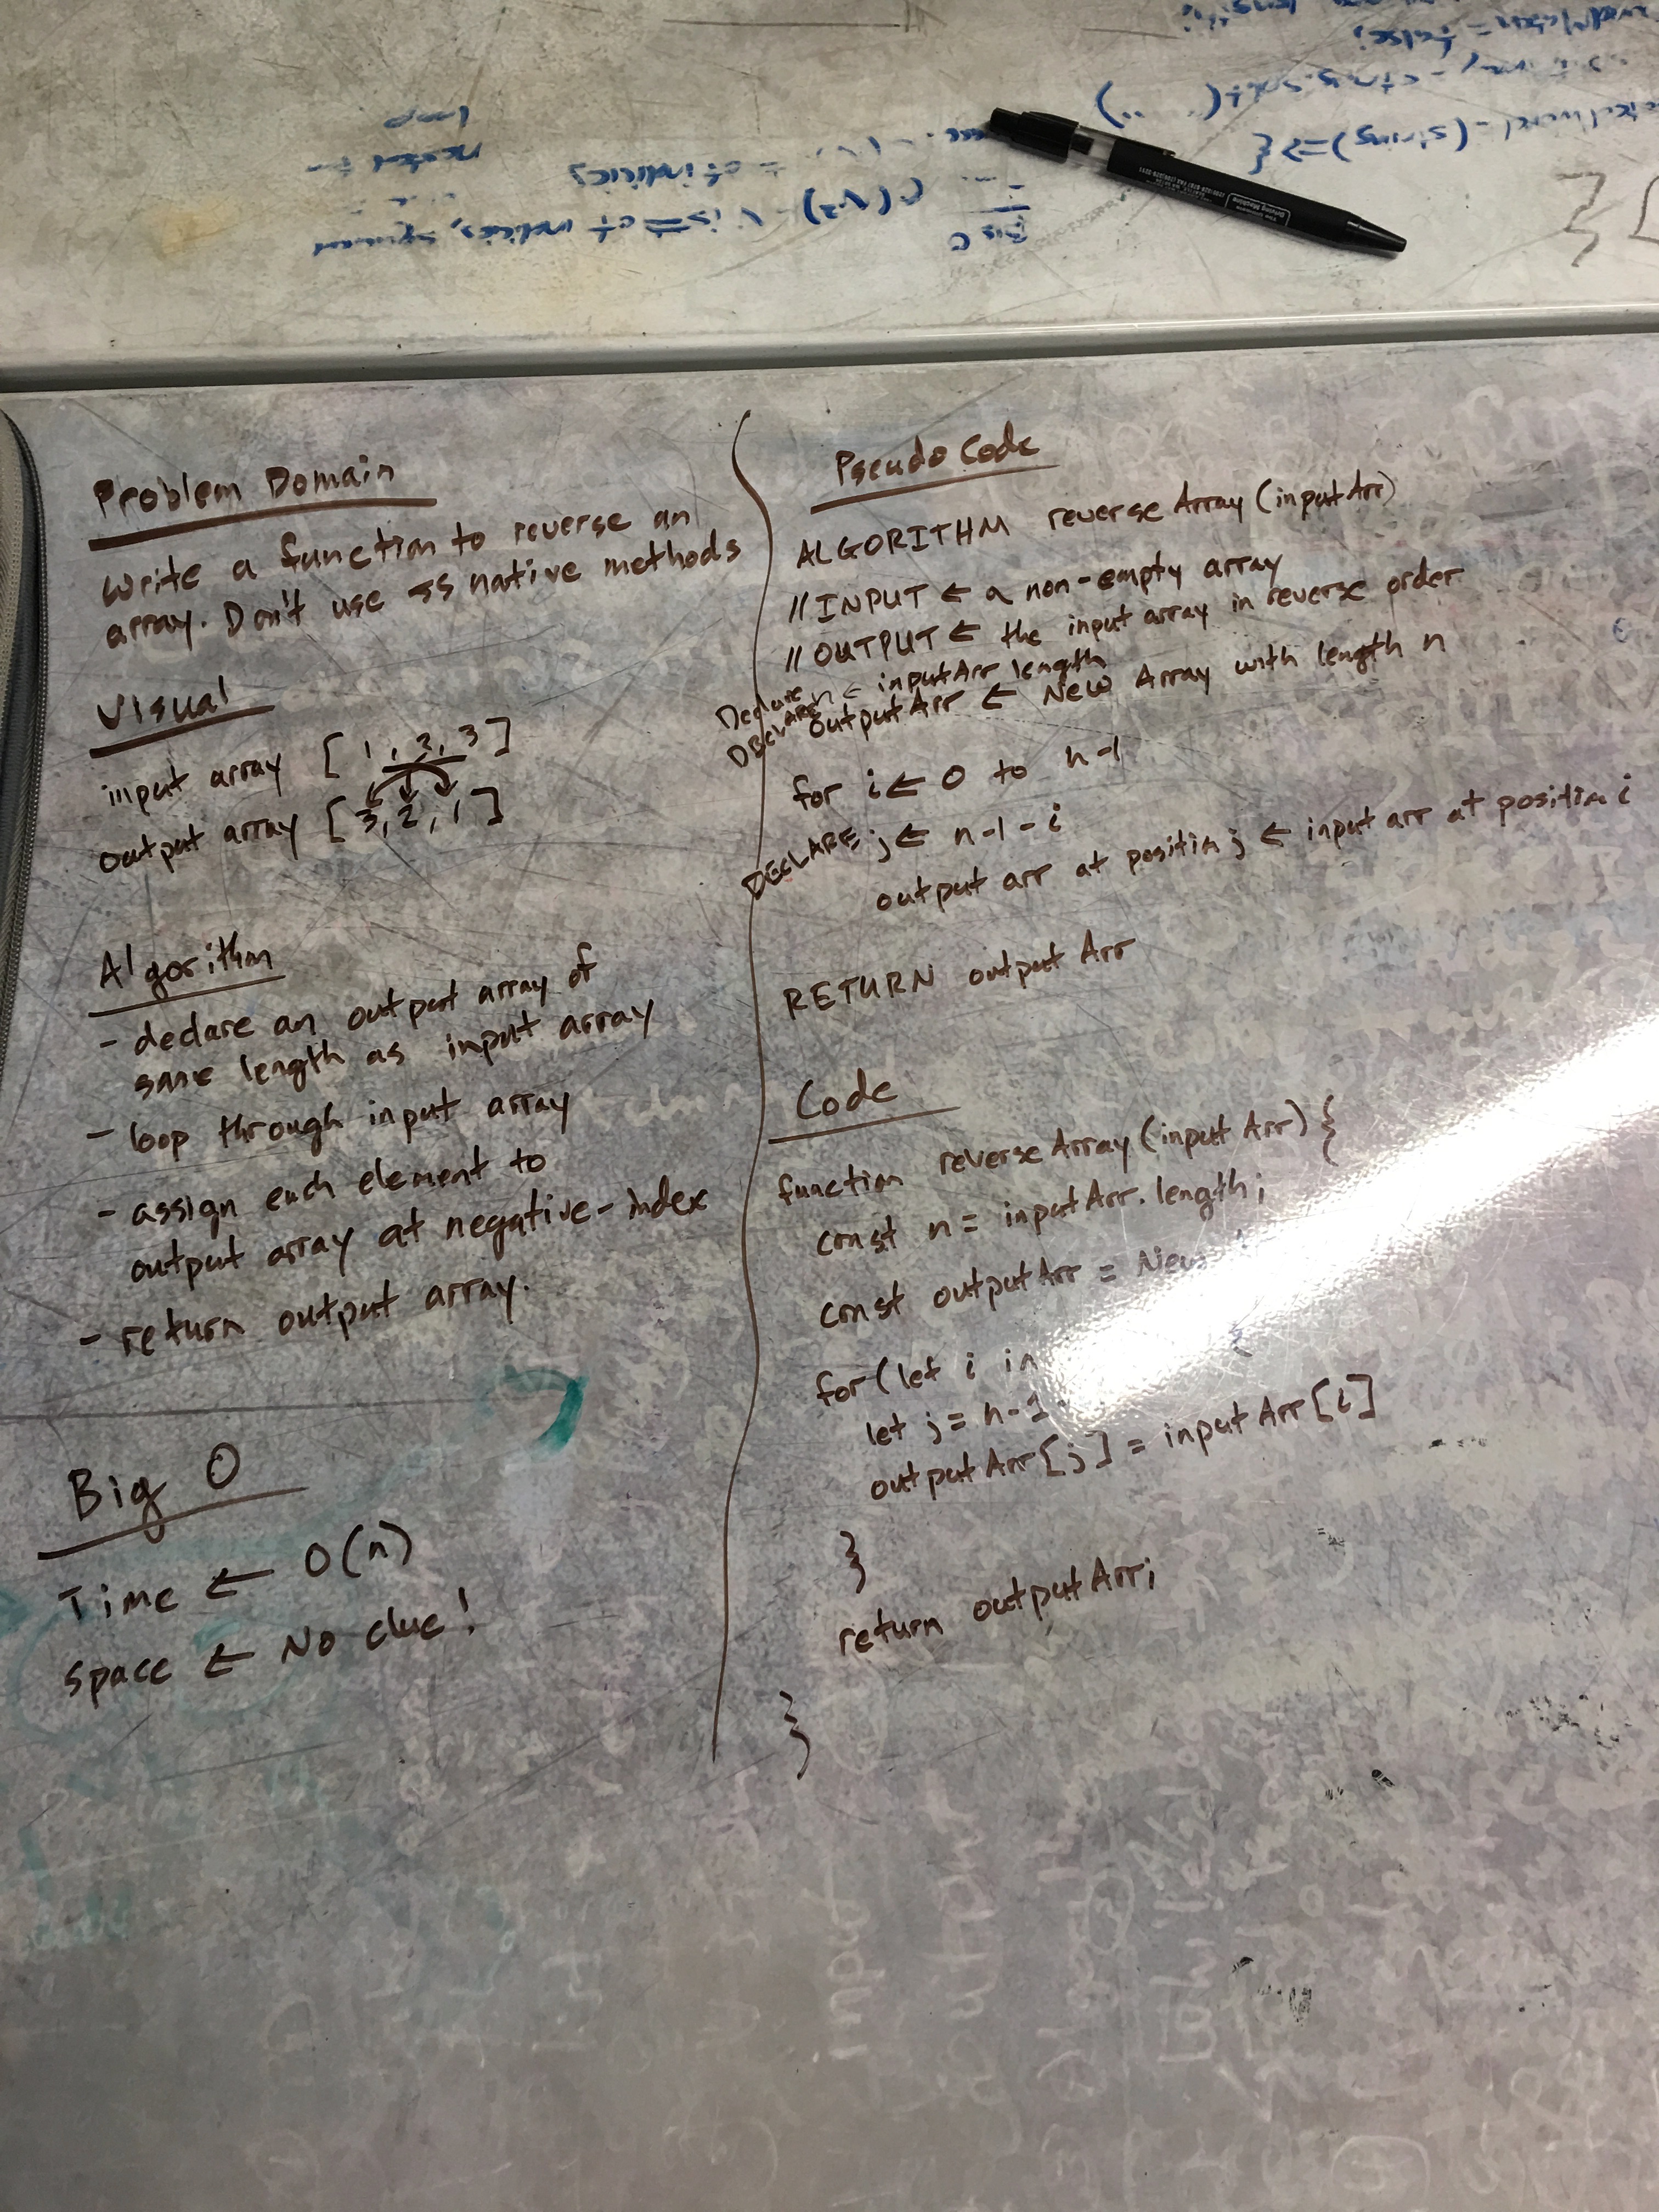 Problem Domain
Write a function to reverse an
array. Don't use JS native methods
Visual
input array [1, 2, 3]
output array [3, 2, 1]
Algorithm
- declare an output array of
same length as input array
- loop through input array
- assign each element to
output array at negative-index
- return output array.
Big O
Time ← O(n)
Space ← No clue!
Pseudo Code
ALGORITHM reverseArray(inputArr)
// INPUT ← a non-empty array
// OUTPUT ← the input array in reverse order
Declare n ← inputArr length
DECLARE outputArr ← New Array with length n
for i ← 0 to n-1
DECLARE j ← n-1-i
output arr at position j ← input arr at position i
RETURN outputArr
Code
function reverseArray(inputArr) {
const n = inputArr.length;
const outputArr = New
for (let i in {
let j = n-1
outputArr[j] = inputArr[i]
}
return outputArr;
}
(string) => {
= false;
Big O
nested for
loop